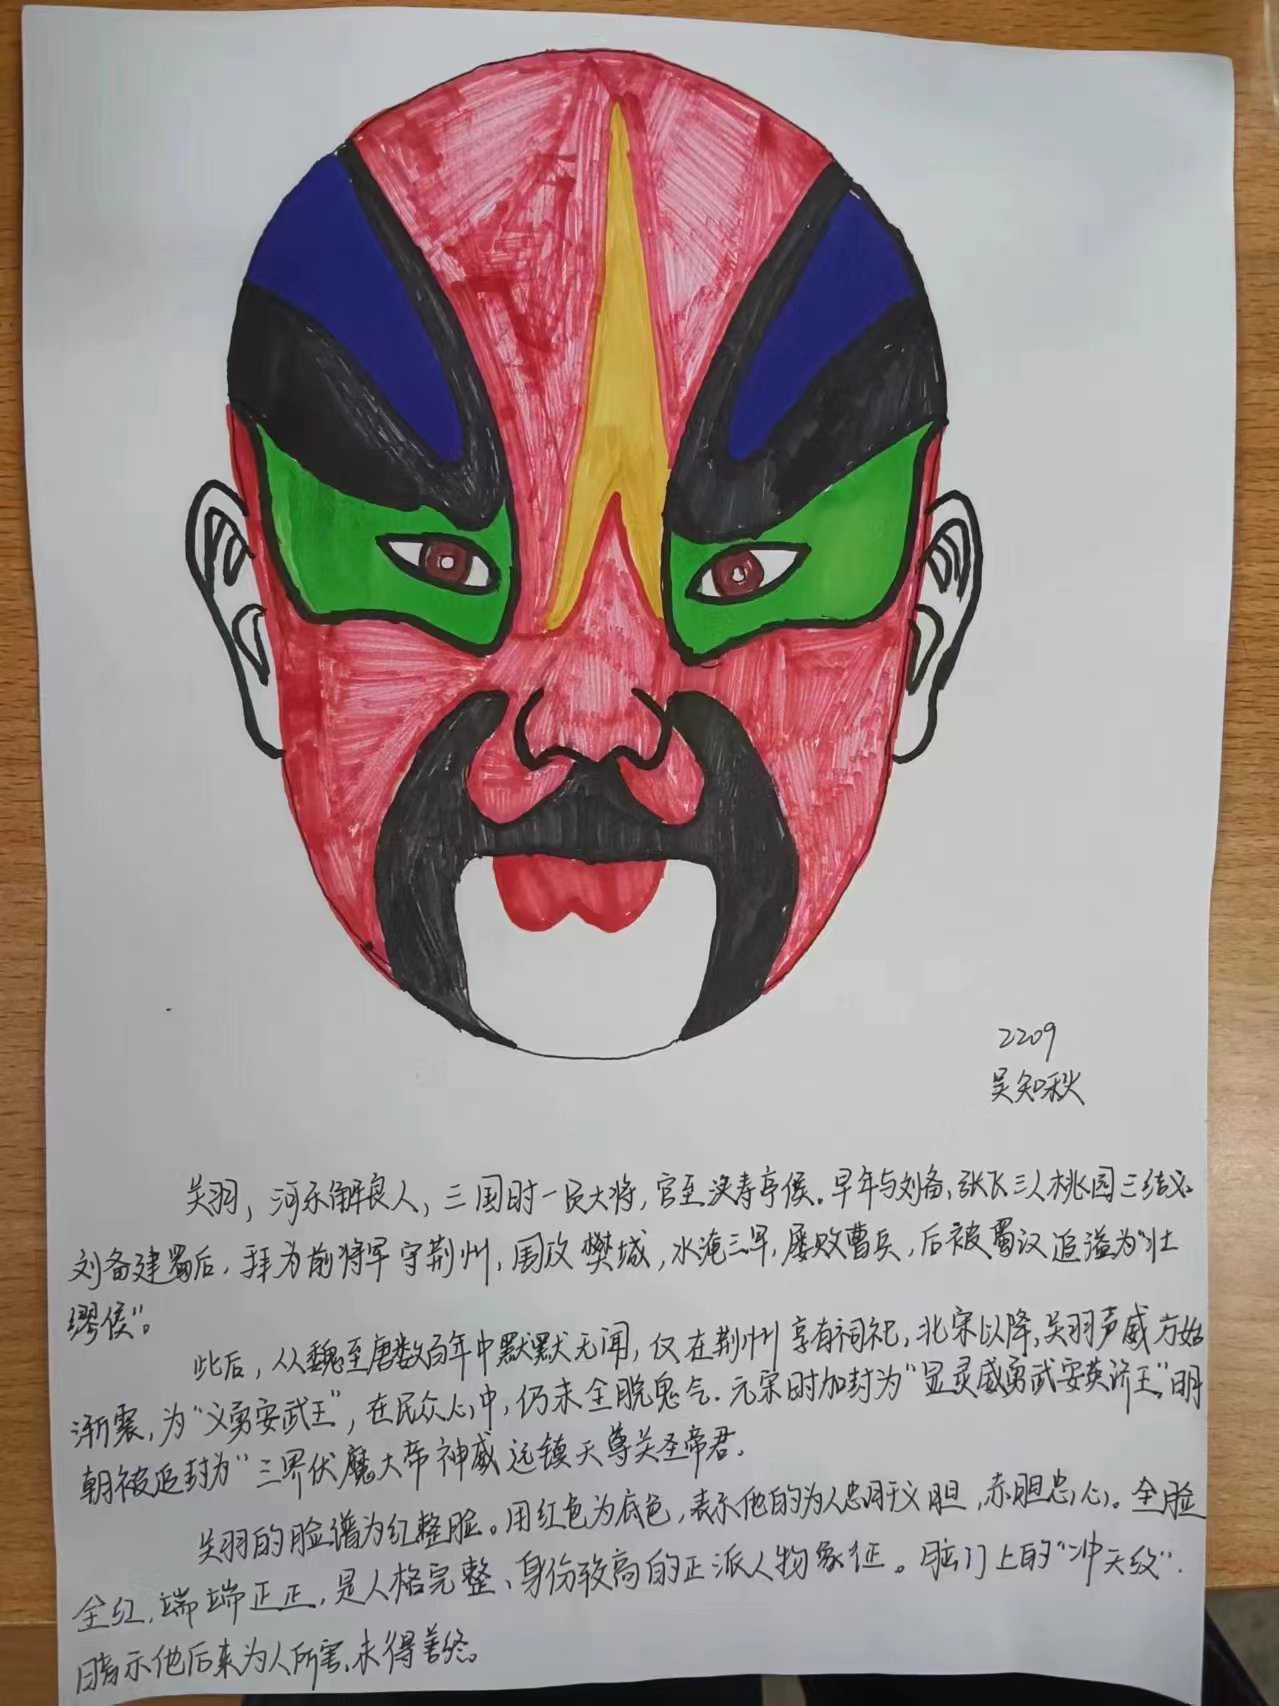 2209
吴知秋
关羽，河东解良人，三国时一员大将，官至汉寿亭侯．早年与刘备，张飞三人桃园三结义．
刘备建蜀后，拜为前将军守荆州，围攻樊城，水淹三军，屡败曹兵，后被蜀汉追谥为“壮
缪侯”。
此后，从魏至唐数百年中默默无闻，仅在荆州享有祠祀，北宋以降，关羽声威方始
渐震，为“义勇安武王”，在民众心中，仍未全脱鬼气．元宋时加封为“显灵威勇武安英济王”，明
朝被追封为“三界伏魔大帝神威远镇天尊关圣帝君．
关羽的脸谱为红整脸。用红色为底色，表示他的为人忠肝义胆，赤胆忠心。全脸
全红，端端正正，是人格完整、身份较高的正派人物象征。脑门上的“冲天纹”．
暗示他后来为人所害，未得善终。